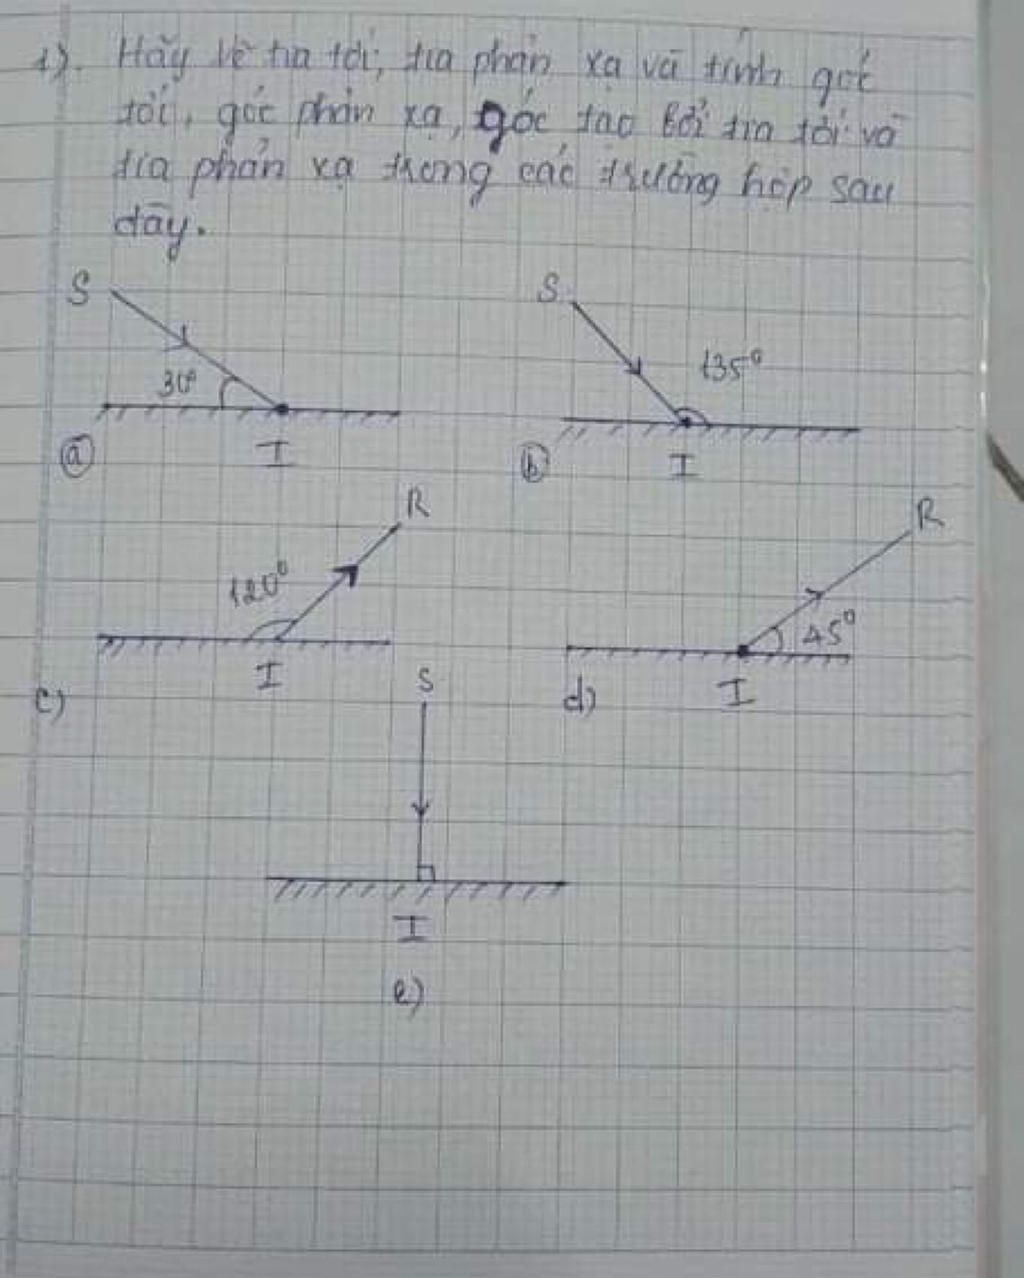 1). Hãy vẽ tia tới, tia phản xạ và tính góc
tới, góc phản xạ, góc tạo bởi tia tới và
tia phản xạ trong các trường hợp sau
đây.
S
30°
I
a
S
135°
I
b
R
120°
I
c)
R
45°
I
d)
S
I
e)